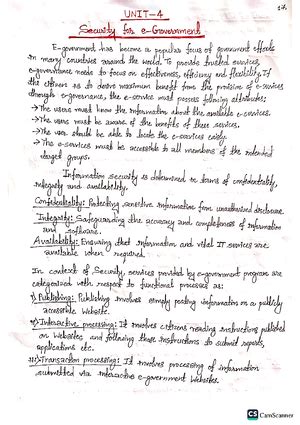 UNIT-4
Security for e-Government
E-government has become a popular focus of government efforts
in many countries around the world. To provide trusted services,
e-governance needs to focus on effectiveness, efficiency and flexibility. If
the citizens is to derive maximum benefit from the provision of e-services
through e-governance, the e-service must possess following attributes:
→ The users must know the information about the available e-services.
→ The users must be aware of the benefits of these services.
→ The user should be able to locate the e-services easily.
→ The e-services must be accessible to all members of the intended
target groups.
Information security is determined in terms of confidentiality,
integrity and availability.
Confidentiality: Protecting sensitive information from unauthorized disclosure.
Integrity: Safeguarding the accuracy and completeness of information
and software.
Availability: Ensuring that information and vital IT services are
available when required.
In context of Security, services provided by e-government program are
categorized with respect to functional processes as:
i) Publishing: Publishing involves simply posting information on a publicly
accessible website.
ii) Interactive processing: It involves citizens reading instructions published
on Websites and following those instructions to submit reports,
applications etc.
iii) Transaction processing: It involves processing of information
submitted via interactive e-government Websites.
CS CamScanner